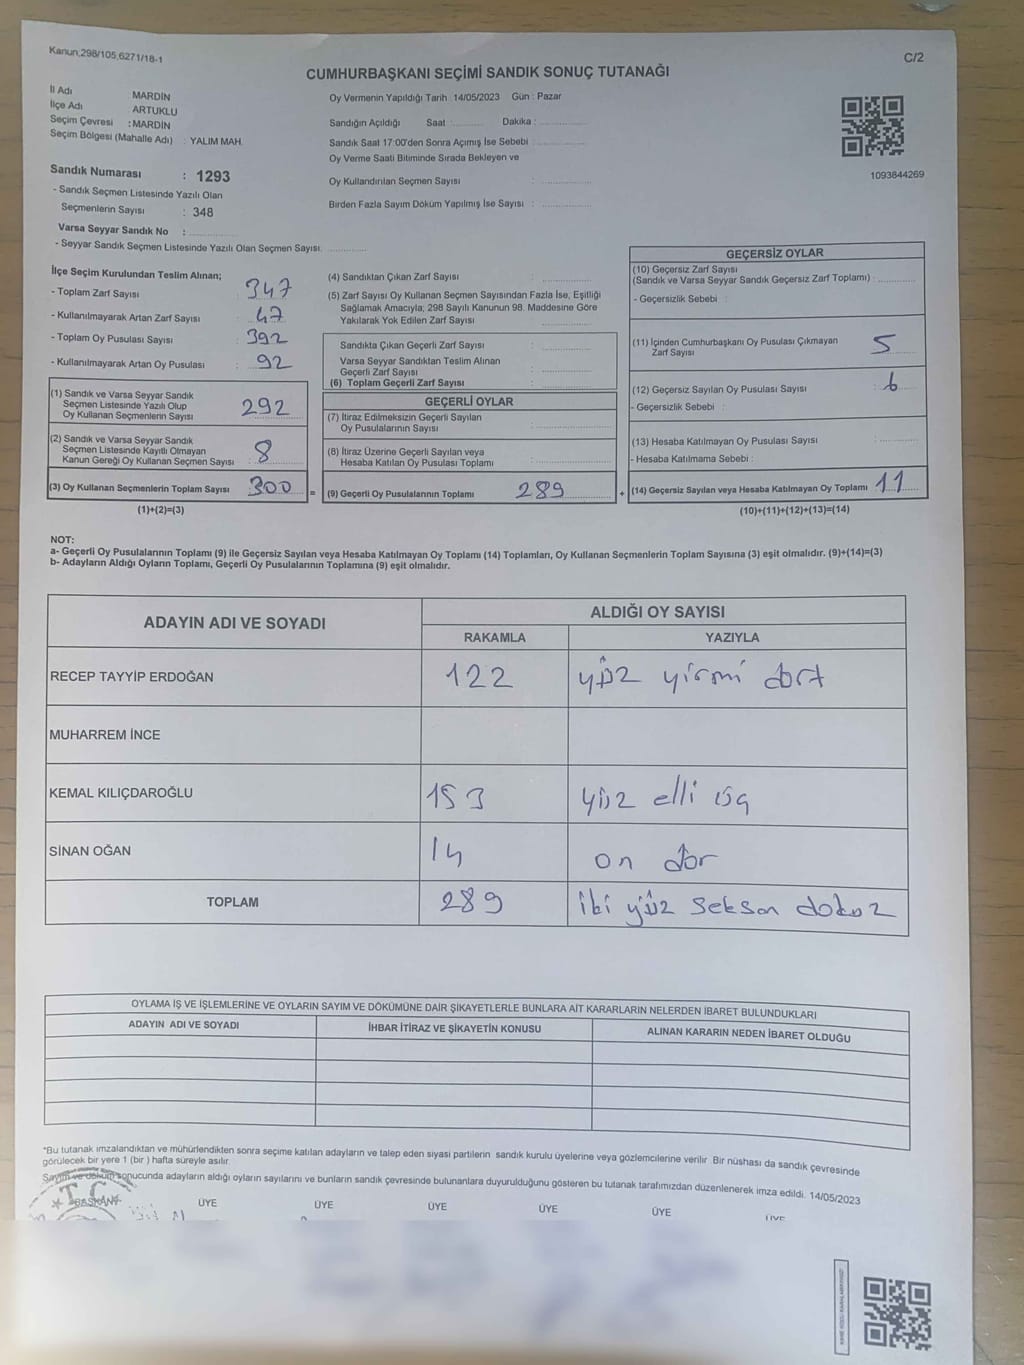 Kanun;298/105,6271/18-1
C/2
CUMHURBAŞKANI SEÇİMİ SANDIK SONUÇ TUTANAĞI
İl Adı MARDİN
İlçe Adı ARTUKLU
Seçim Çevresi : MARDİN
Seçim Bölgesi (Mahalle Adı) : YALIM MAH.
Sandık Numarası : 1293
- Sandık Seçmen Listesinde Yazılı Olan
Seçmenlerin Sayısı : 348
Varsa Seyyar Sandık No :
- Seyyar Sandık Seçmen Listesinde Yazılı Olan Seçmen Sayısı:
Oy Vermenin Yapıldığı Tarih : 14/05/2023 Gün : Pazar
Sandığın Açıldığı Saat : Dakika :
Sandık Saat 17:00'den Sonra Açımış İse Sebebi :
Oy Verme Saati Bitiminde Sırada Bekleyen ve
Oy Kullandırılan Seçmen Sayısı :
Birden Fazla Sayım Döküm Yapılmış İse Sayısı :
1093844269
İlçe Seçim Kurulundan Teslim Alınan;
- Toplam Zarf Sayısı : 347
- Kullanılmayarak Artan Zarf Sayısı : 47
- Toplam Oy Pusulası Sayısı : 392
- Kullanılmayarak Artan Oy Pusulası : 92
(1) Sandık ve Varsa Seyyar Sandık
Seçmen Listesinde Yazılı Olup
Oy Kullanan Seçmenlerin Sayısı 292
(2) Sandık ve Varsa Seyyar Sandık
Seçmen Listesinde Kayıtlı Olmayan
Kanun Gereği Oy Kullanan Seçmen Sayısı 8
(3) Oy Kullanan Seçmenlerin Toplam Sayısı 300 =
(1)+(2)=(3)
(4) Sandıktan Çıkan Zarf Sayısı :
(5) Zarf Sayısı Oy Kullanan Seçmen Sayısından Fazla İse, Eşitliği
Sağlamak Amacıyla; 298 Sayılı Kanunun 98. Maddesine Göre
Yakılarak Yok Edilen Zarf Sayısı :
Sandıkta Çıkan Geçerli Zarf Sayısı :
Varsa Seyyar Sandıktan Teslim Alınan
Geçerli Zarf Sayısı :
(6) Toplam Geçerli Zarf Sayısı :
GEÇERLİ OYLAR
(7) İtiraz Edilmeksizin Geçerli Sayılan
Oy Pusulalarının Sayısı :
(8) İtiraz Üzerine Geçerli Sayılan veya
Hesaba Katılan Oy Pusulası Toplamı :
(9) Geçerli Oy Pusulalarının Toplamı 289 +
GEÇERSİZ OYLAR
(10) Geçersiz Zarf Sayısı
(Sandık ve Varsa Seyyar Sandık Geçersiz Zarf Toplamı) :
- Geçersizlik Sebebi :
(11) İçinden Cumhurbaşkanı Oy Pusulası Çıkmayan
Zarf Sayısı 5
(12) Geçersiz Sayılan Oy Pusulası Sayısı : 6
- Geçersizlik Sebebi :
(13) Hesaba Katılmayan Oy Pusulası Sayısı :
- Hesaba Katılmama Sebebi :
(14) Geçersiz Sayılan veya Hesaba Katılmayan Oy Toplamı 11
(10)+(11)+(12)+(13)=(14)
NOT:
a- Geçerli Oy Pusulalarının Toplamı (9) ile Geçersiz Sayılan veya Hesaba Katılmayan Oy Toplamı (14) Toplamları, Oy Kullanan Seçmenlerin Toplam Sayısına (3) eşit olmalıdır. (9)+(14)=(3)
b- Adayların Aldığı Oyların Toplamı, Geçerli Oy Pusulalarının Toplamına (9) eşit olmalıdır.
ADAYIN ADI VE SOYADI ALDIĞI OY SAYISI
RAKAMLA YAZIYLA
RECEP TAYYİP ERDOĞAN 122 yüz yirmi dört
MUHARREM İNCE
KEMAL KILIÇDAROĞLU 153 yüz elli üç
SİNAN OĞAN 14 on dör
TOPLAM 289 iki yüz seksen dokuz
OYLAMA İŞ VE İŞLEMLERİNE VE OYLARIN SAYIM VE DÖKÜMÜNE DAİR ŞİKAYETLERLE BUNLARA AİT KARARLARIN NELERDEN İBARET BULUNDUKLARI
ADAYIN ADI VE SOYADI İHBAR İTİRAZ VE ŞİKAYETİN KONUSU ALINAN KARARIN NEDEN İBARET OLDUĞU
*Bu tutanak imzalandıktan ve mühürlendikten sonra seçime katılan adayların ve talep eden siyasi partilerin sandık kurulu üyelerine veya gözlemcilerine verilir. Bir nüshası da sandık çevresinde
görülecek bir yere 1 (bir ) hafta süreyle asılır.
Sayım ve döküm sonucunda adayların aldığı oyların sayılarını ve bunların sandık çevresinde bulunanlara duyurulduğunu gösteren bu tutanak tarafımızdan düzenlenerek imza edildi. 14/05/2023
T.C.
BAŞKAN ÜYE ÜYE ÜYE ÜYE ÜYE ÜYE